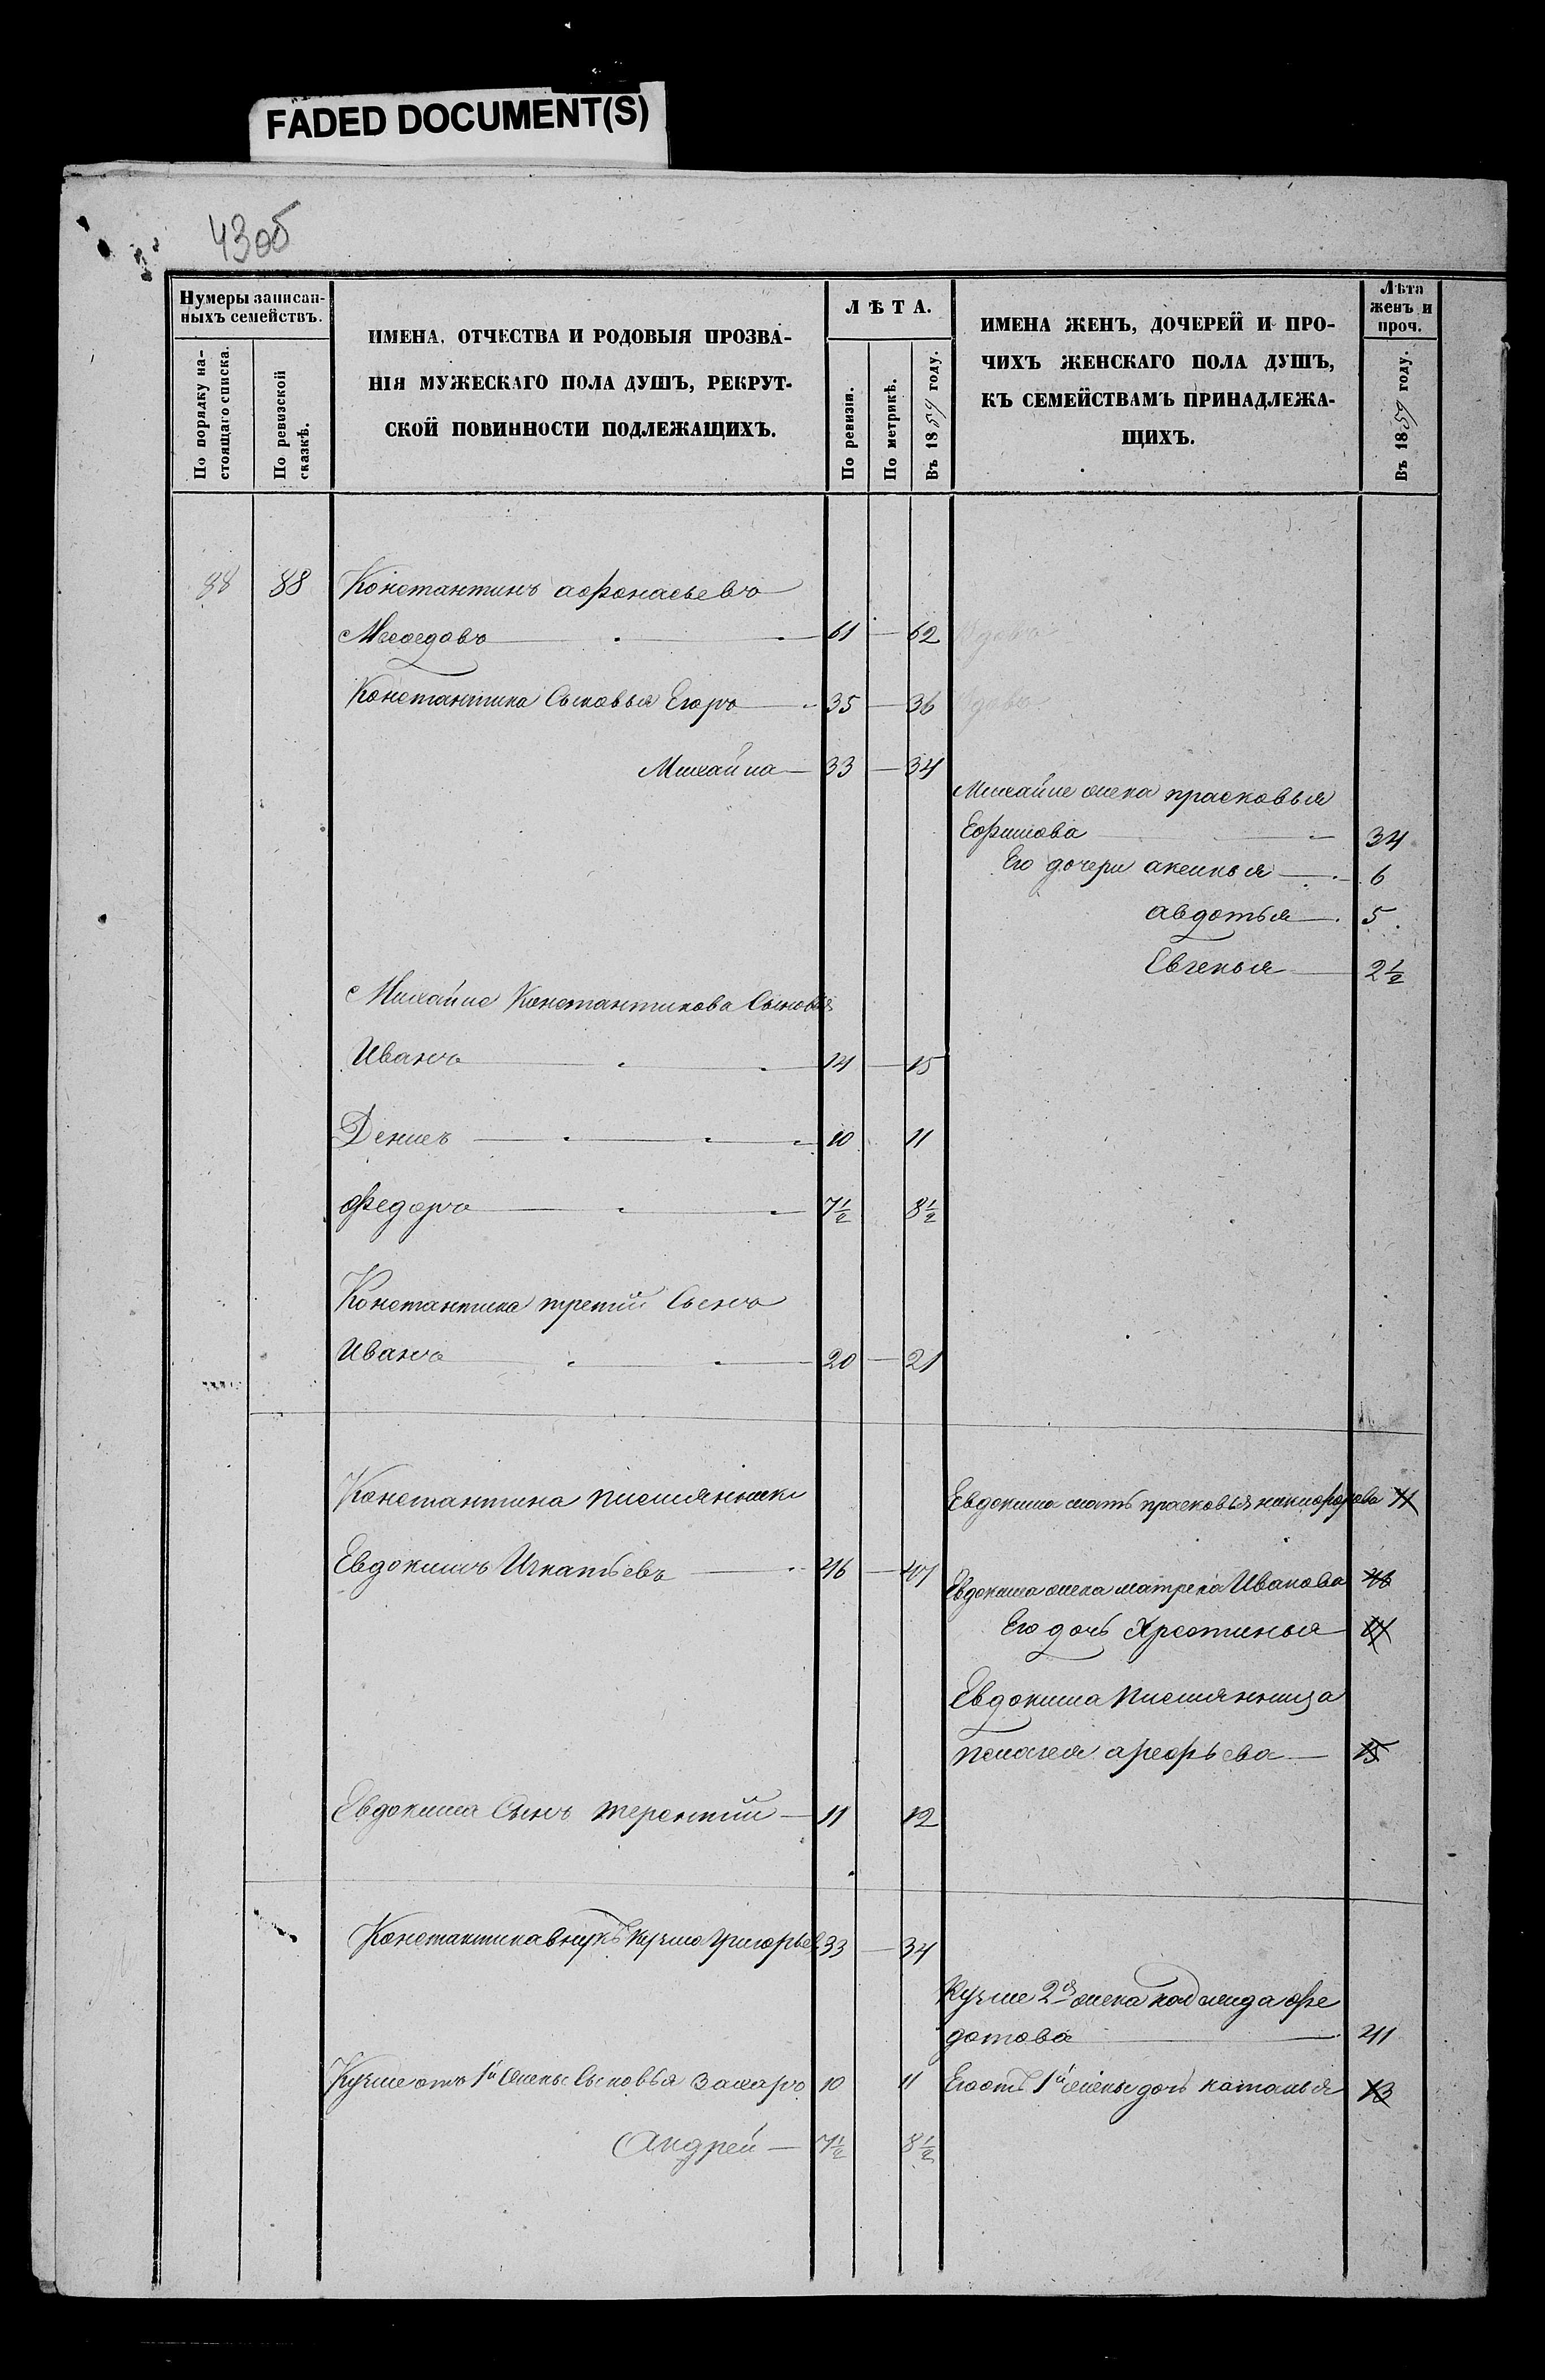 FADED DOCUMENT(S)
43об
Нумеры записан-
ныхъ семействъ.
По порядку на-
стоящаго списка.
По ревизской
сказкѣ.
ИМЕНА, ОТЧЕСТВА И РОДОВЫЯ ПРОЗВА-
НІЯ МУЖЕСКАГО ПОЛА ДУШЪ, РЕКРУТ-
СКОЙ ПОВИННОСТИ ПОДЛЕЖАЩИХЪ.
ЛѢТА.
По ревизіи.
По метрикѣ.
Въ 1859 году.
ИМЕНА ЖЕНЪ, ДОЧЕРЕЙ И ПРО-
ЧИХЪ ЖЕНСКАГО ПОЛА ДУШЪ,
КЪ СЕМЕЙСТВАМЪ ПРИНАДЛЕЖА-
ЩИХЪ.
Лѣта
женъ и
проч.
Въ 1859 году.
88 88 Константинъ афонасьевъ
Мясоедовъ 61 62 Вдовъ
Константина Сыновья Егоръ 35 36 Вдовъ
Михайла 33 34
Михайле жена прасковья
Ефимова 34
Его дочери аксинья 6
авдотья 5
Евгенья 2½
Михайле Константинова Сыновья
Иванъ 14 15
Денисъ 10 11
федоръ 7½ 8½
Константина третий Сынъ
Иванъ 20 21
Константина племянники
Евдокима мать прасковья никифорова
Евдокимъ Игнатьевъ 46 47
Евдокима жена матрена Иванова
Его дочь Хрестинья
Евдокима племянница
пелагея арефьева 15
Евдокима Сынъ терентий 11 12
Константина внукъ Кузма Григорьев 33 34
Кузме 2я жена фе
дотова 41
Кузме отъ 1й жены Сыновья Захаръ 10 11
Его отъ 1й жены дочь наталья 13
Андрей 7½ 8½